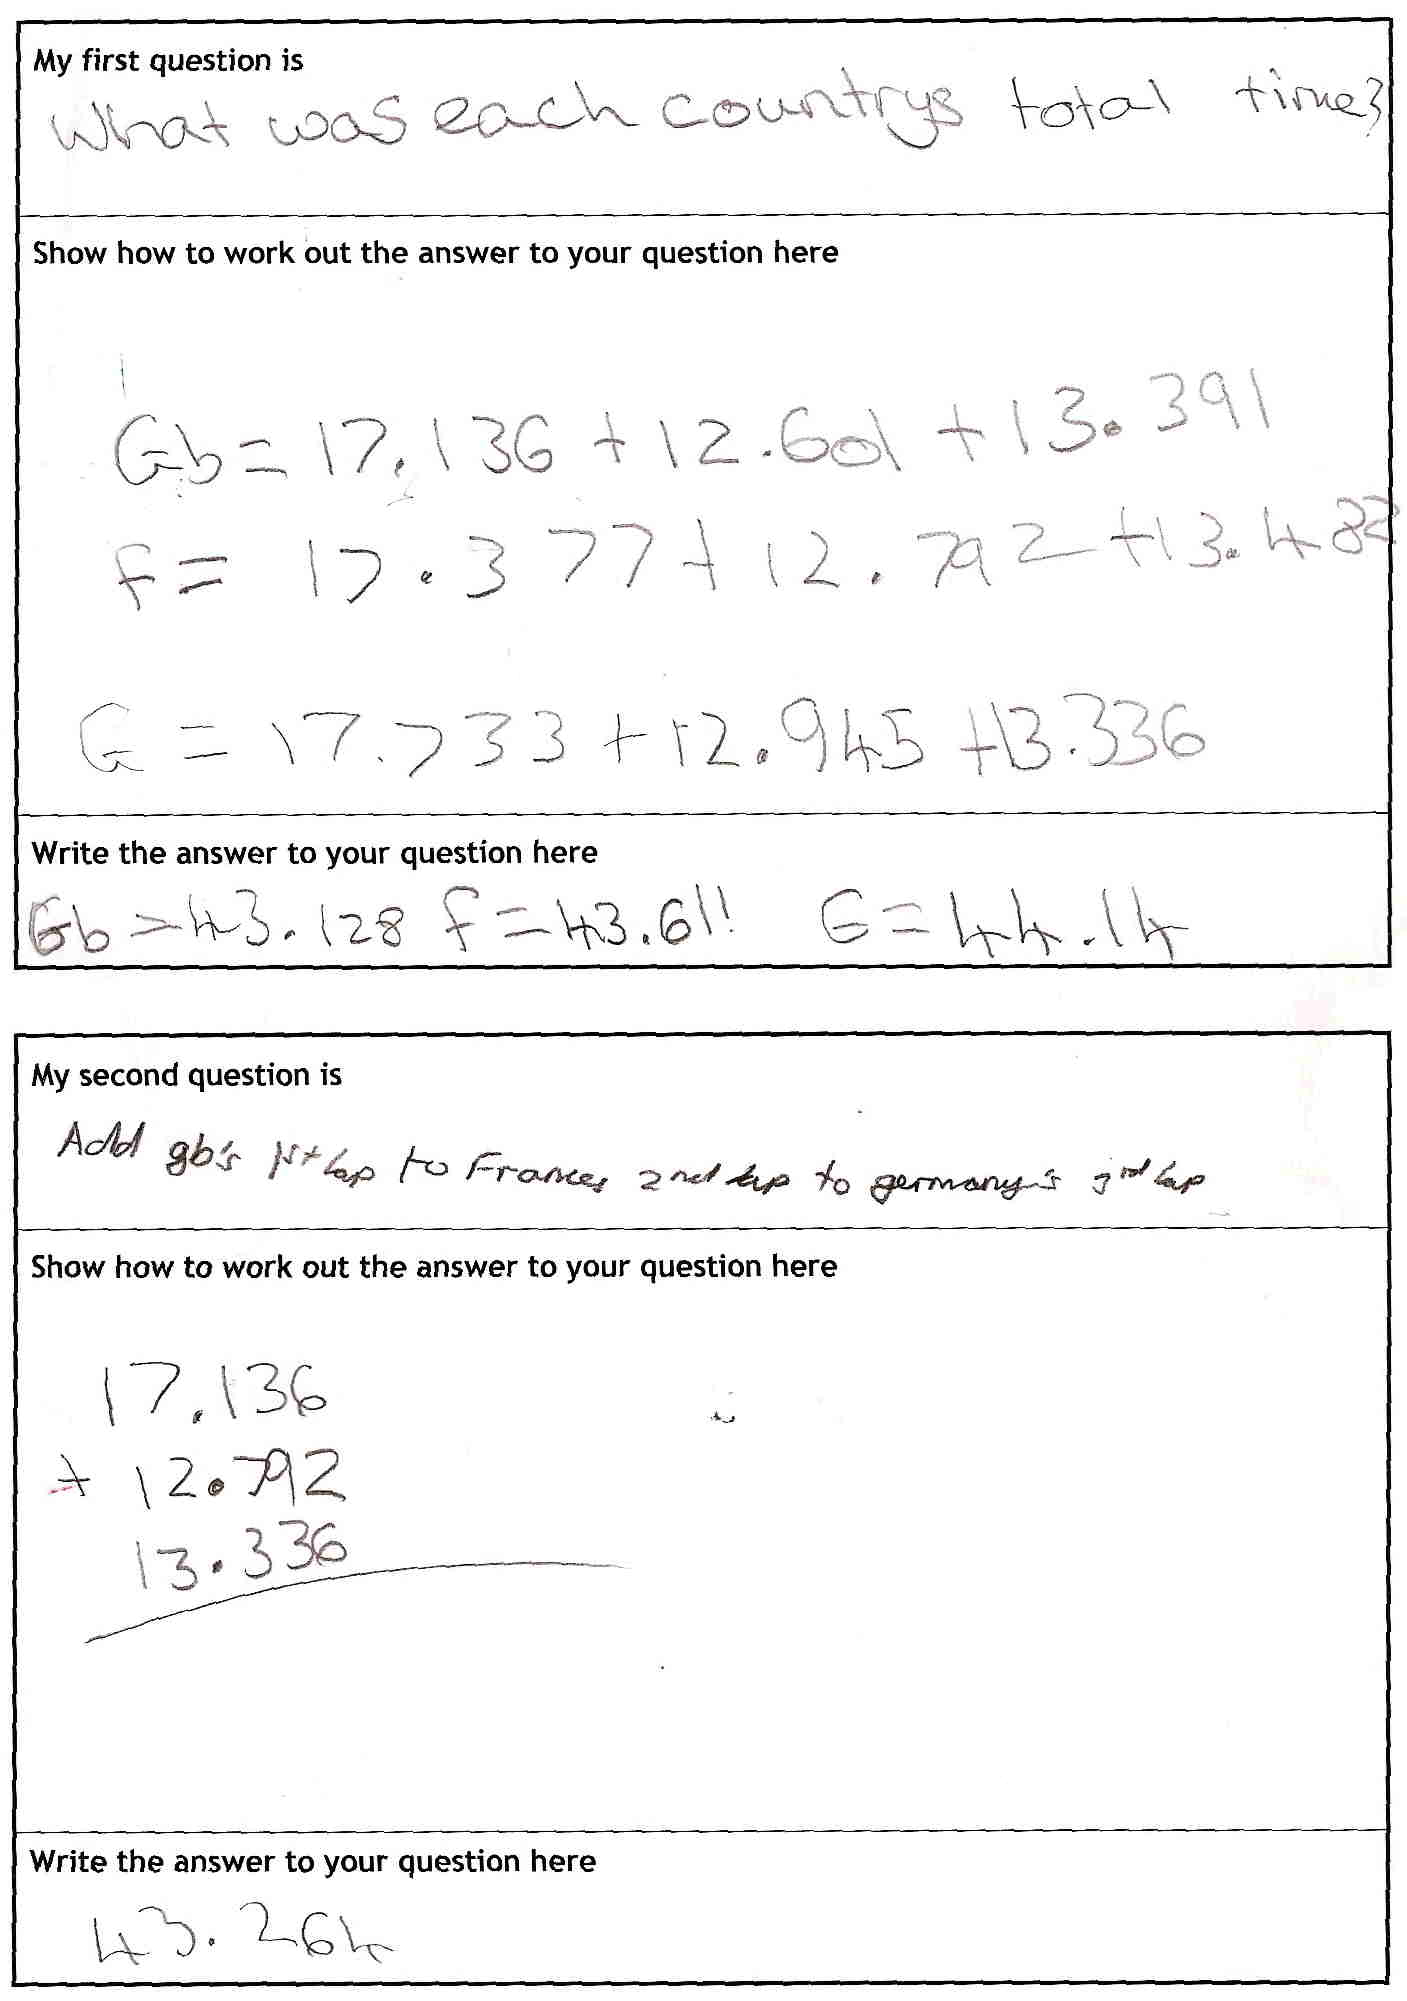 My first question is
What was each countrys total time?
Show how to work out the answer to your question here
Gb = 17.136 + 12.601 + 13.391
F = 17.377 + 12.792 + 13.482
G = 17.733 + 12.945 + 13.336
Write the answer to your question here
Gb = 43.128 F = 43.611 G = 44.14
My second question is
Add gb's 1st lap to Frances 2nd lap to germany's 3rd lap
Show how to work out the answer to your question here
17.136
+ 12.792
13.336
Write the answer to your question here
43.264